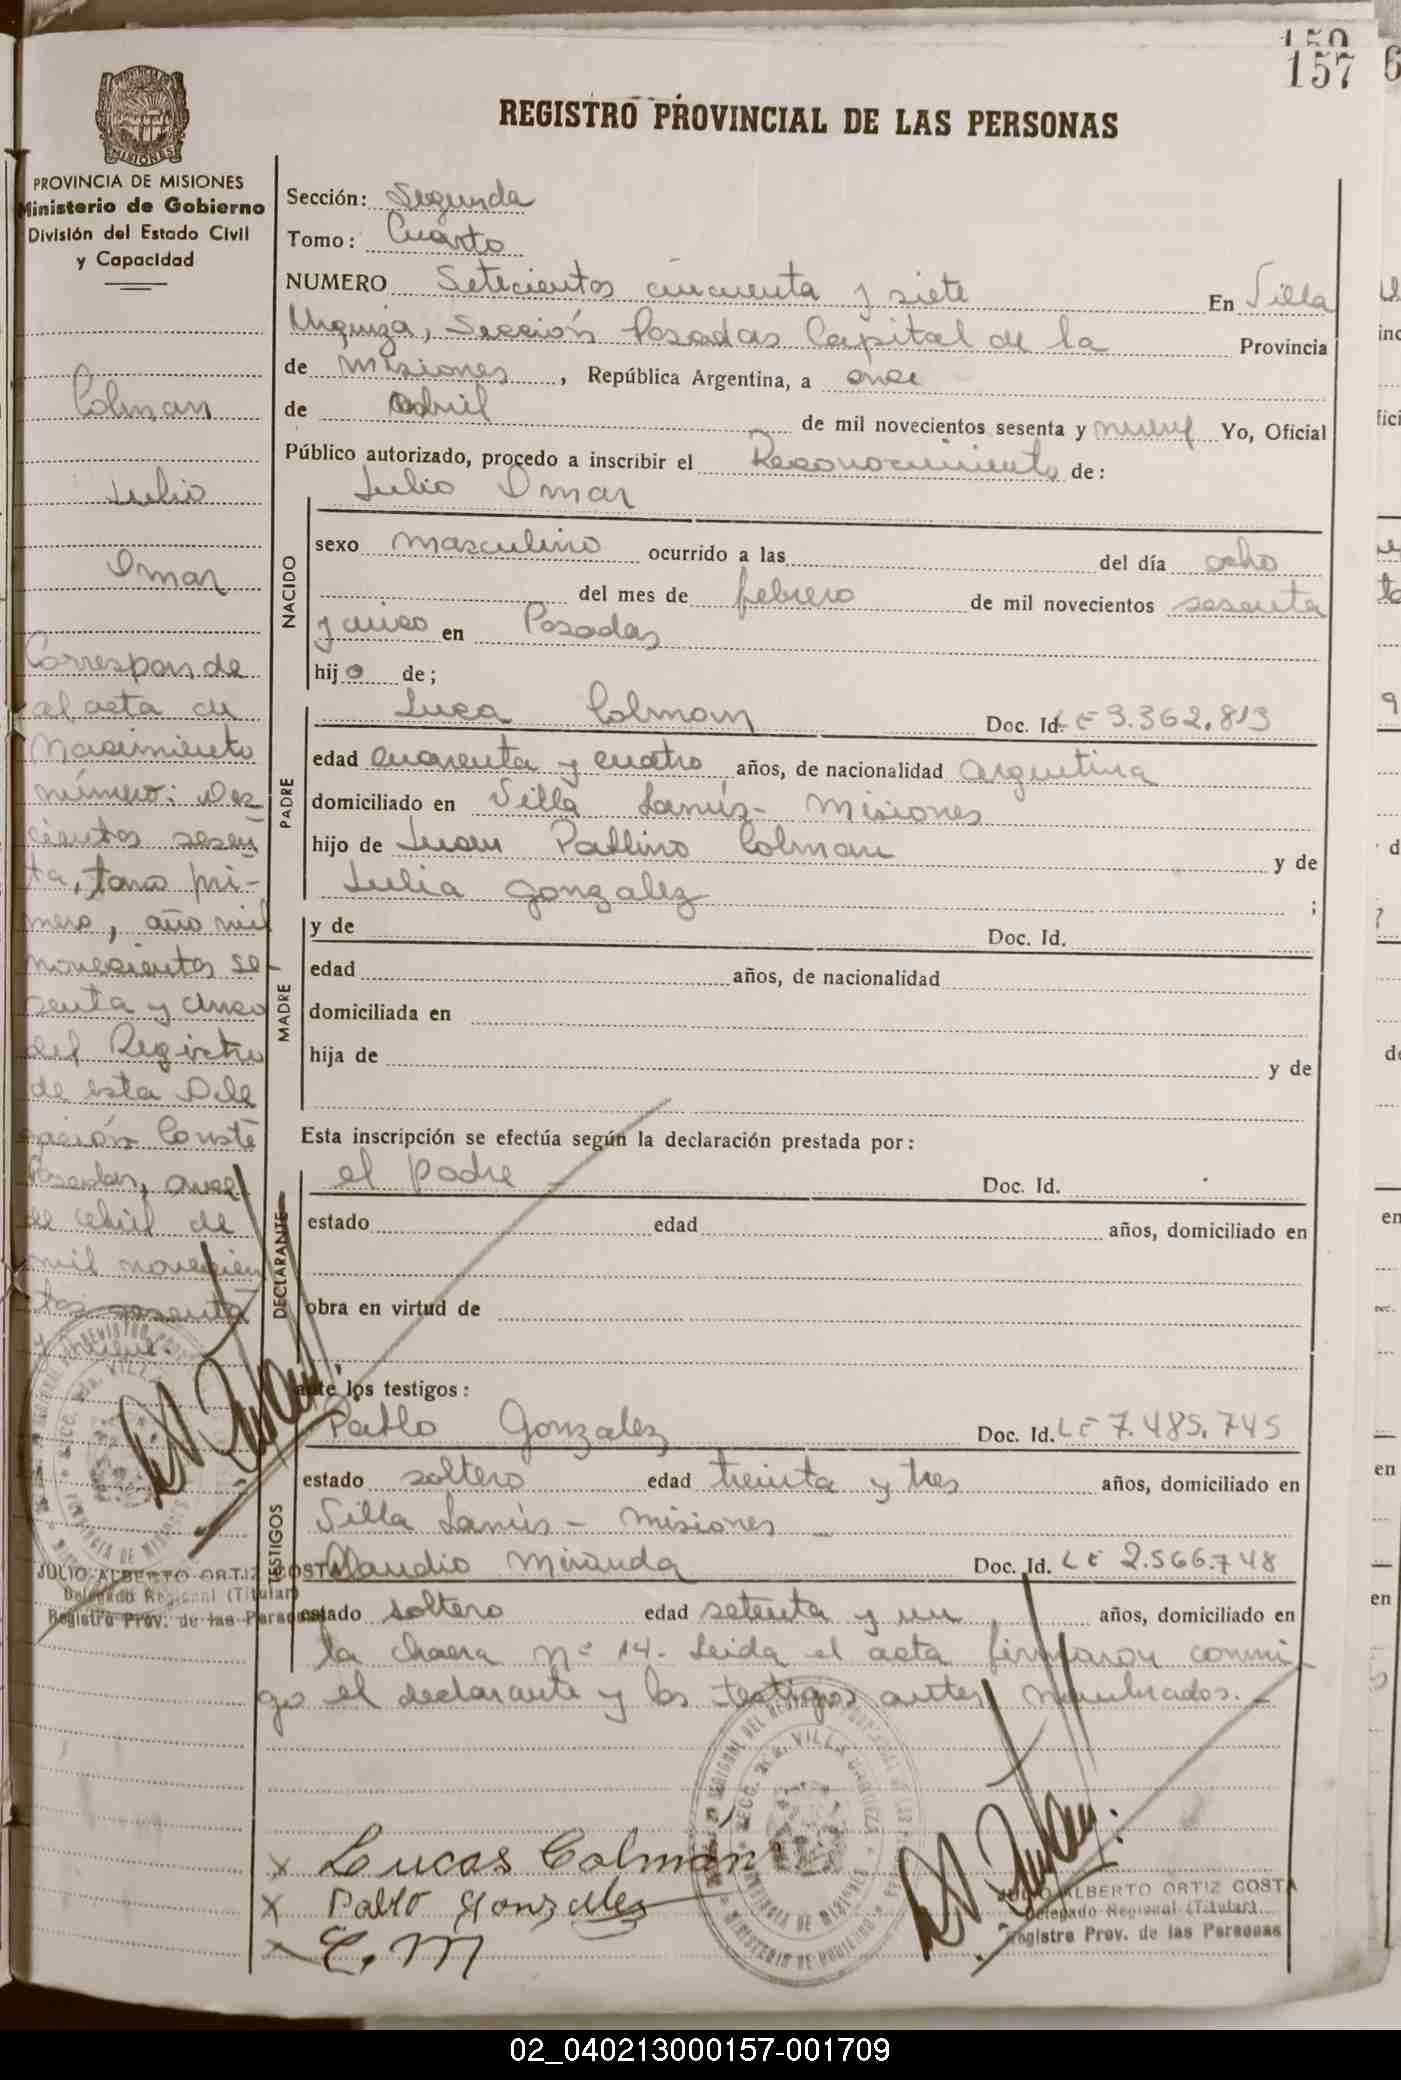 150
157
REGISTRO PROVINCIAL DE LAS PERSONAS
PROVINCIA DE MISIONES
Ministerio de Gobierno
División del Estado Civil
y Capacidad
Colman
Julio
Omar
Corresponde
al acta de
Nacimiento
número: Dos
cientos sesen
ta, tomo pri-
mero, año mil
novecientos se-
senta y cinco
del Registro
de esta Dele
gación Conste
Posadas, once
de abril de
mil novecien
tos sesenta
y nueve.
JULIO ALBERTO ORTIZ COSTA
Delegado Regional (Titular)
Registro Prov. de las Personas
Sección: Segunda
Tomo: Cuarto
NUMERO Setecientos cincuenta y siete En Villa
Urquiza, Sección Posadas Capital de la Provincia
de Misiones, República Argentina, a once
de abril de mil novecientos sesenta y nueve Yo, Oficial
Público autorizado, procedo a inscribir el Reconocimiento de:
Julio Omar
NACIDO
sexo masculino ocurrido a las del día ocho
del mes de febrero de mil novecientos sesenta
y cinco en Posadas
hijo de;
PADRE
Luca Colman Doc. Id. LE 3.362.813
edad cuarenta y cuatro años, de nacionalidad argentina
domiciliado en Villa Lanús - Misiones
hijo de Juan Colman y de
Julia Gonzalez ;
MADRE
y de Doc. Id.
edad años, de nacionalidad
domiciliada en
hija de y de
Esta inscripción se efectúa según la declaración prestada por:
DECLARANTE
el padre - Doc. Id.
estado edad años, domiciliado en
obra en virtud de
ante los testigos:
TESTIGOS
Pablo Gonzalez Doc. Id. LE 7.485.745
estado soltero edad treinta y tres años, domiciliado en
Villa Lanús - Misiones -
Claudio Miranda Doc. Id. LE 2.566.748
estado soltero edad setenta y un años, domiciliado en
la chacra nº 14. Leida el acta firmaron conmi
go el declarante y los testigos antes nombrados. -
x Lucas Colman
x Pablo Gonzalez
x C. M
JULIO ALBERTO ORTIZ COSTA
Delegado Regional (Titular)
Registro Prov. de las Personas
02_040213000157-001709